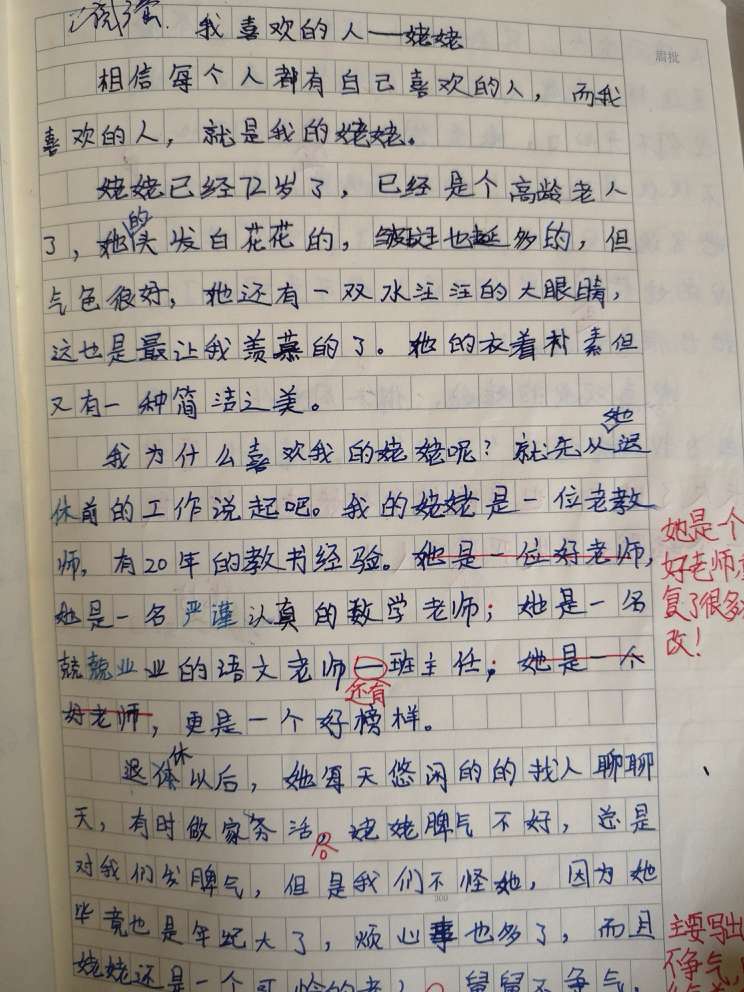 我喜欢的人——姥姥
眉批
相信每个人都有自己喜欢的人，而我
喜欢的人，就是我的姥姥。
姥姥已经72岁了，已经是个高龄老人
了，她的头发白花花的，皱斑也挺多的，但
气色很好，她还有一双水汪汪的大眼睛，
这也是最让我羡慕的了。她的衣着朴素但
又有一种简洁之美。
我为什么喜欢我的姥姥呢？就先从她退
休前的工作说起吧。我的姥姥是一位老教
师，有20年的教书经验。她是一位好老师，
她是一名严谨认真的数学老师；她是一名
兢兢业业的语文老师一班主任；她是一个
还有
好老师，更是一个好榜样。
她是个
好老师,
复了很多
改！
退休以后，她每天悠闲的的找人聊聊
天，有时做家务活。姥姥脾气不好，总是
对我们发脾气，但是我们不怪她，因为她
300
毕竟也是年纪大了，烦心事也多了，而且
姥姥还是一个可怜的老人。舅舅不争气，
主要写出
不争气，